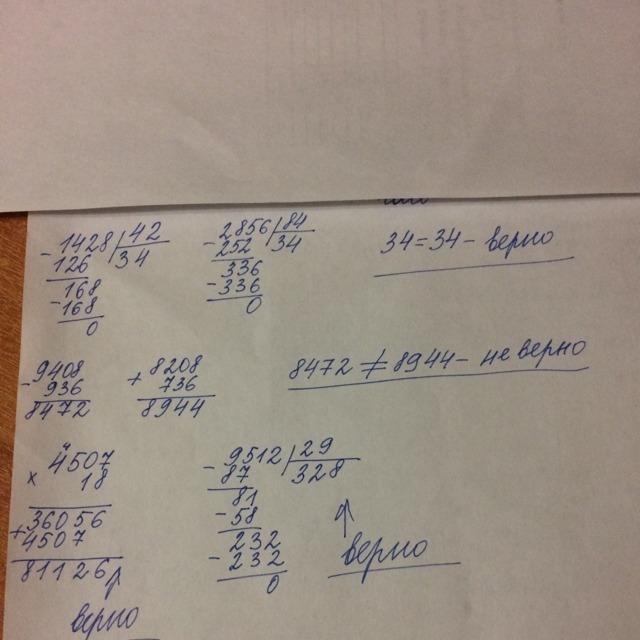 - 1428 | 42
126 34
168
- 168
0
- 2856 | 84
252 34
336
- 336
0
34=34 - верно
- 9408
936
8472
+ 8208
736
8944
8472 ≠ 8944 - не верно
4507
x 18
36056
+ 4507
81126
верно
- 9512 | 29
87 328
81
- 58
232
- 232
0
верно